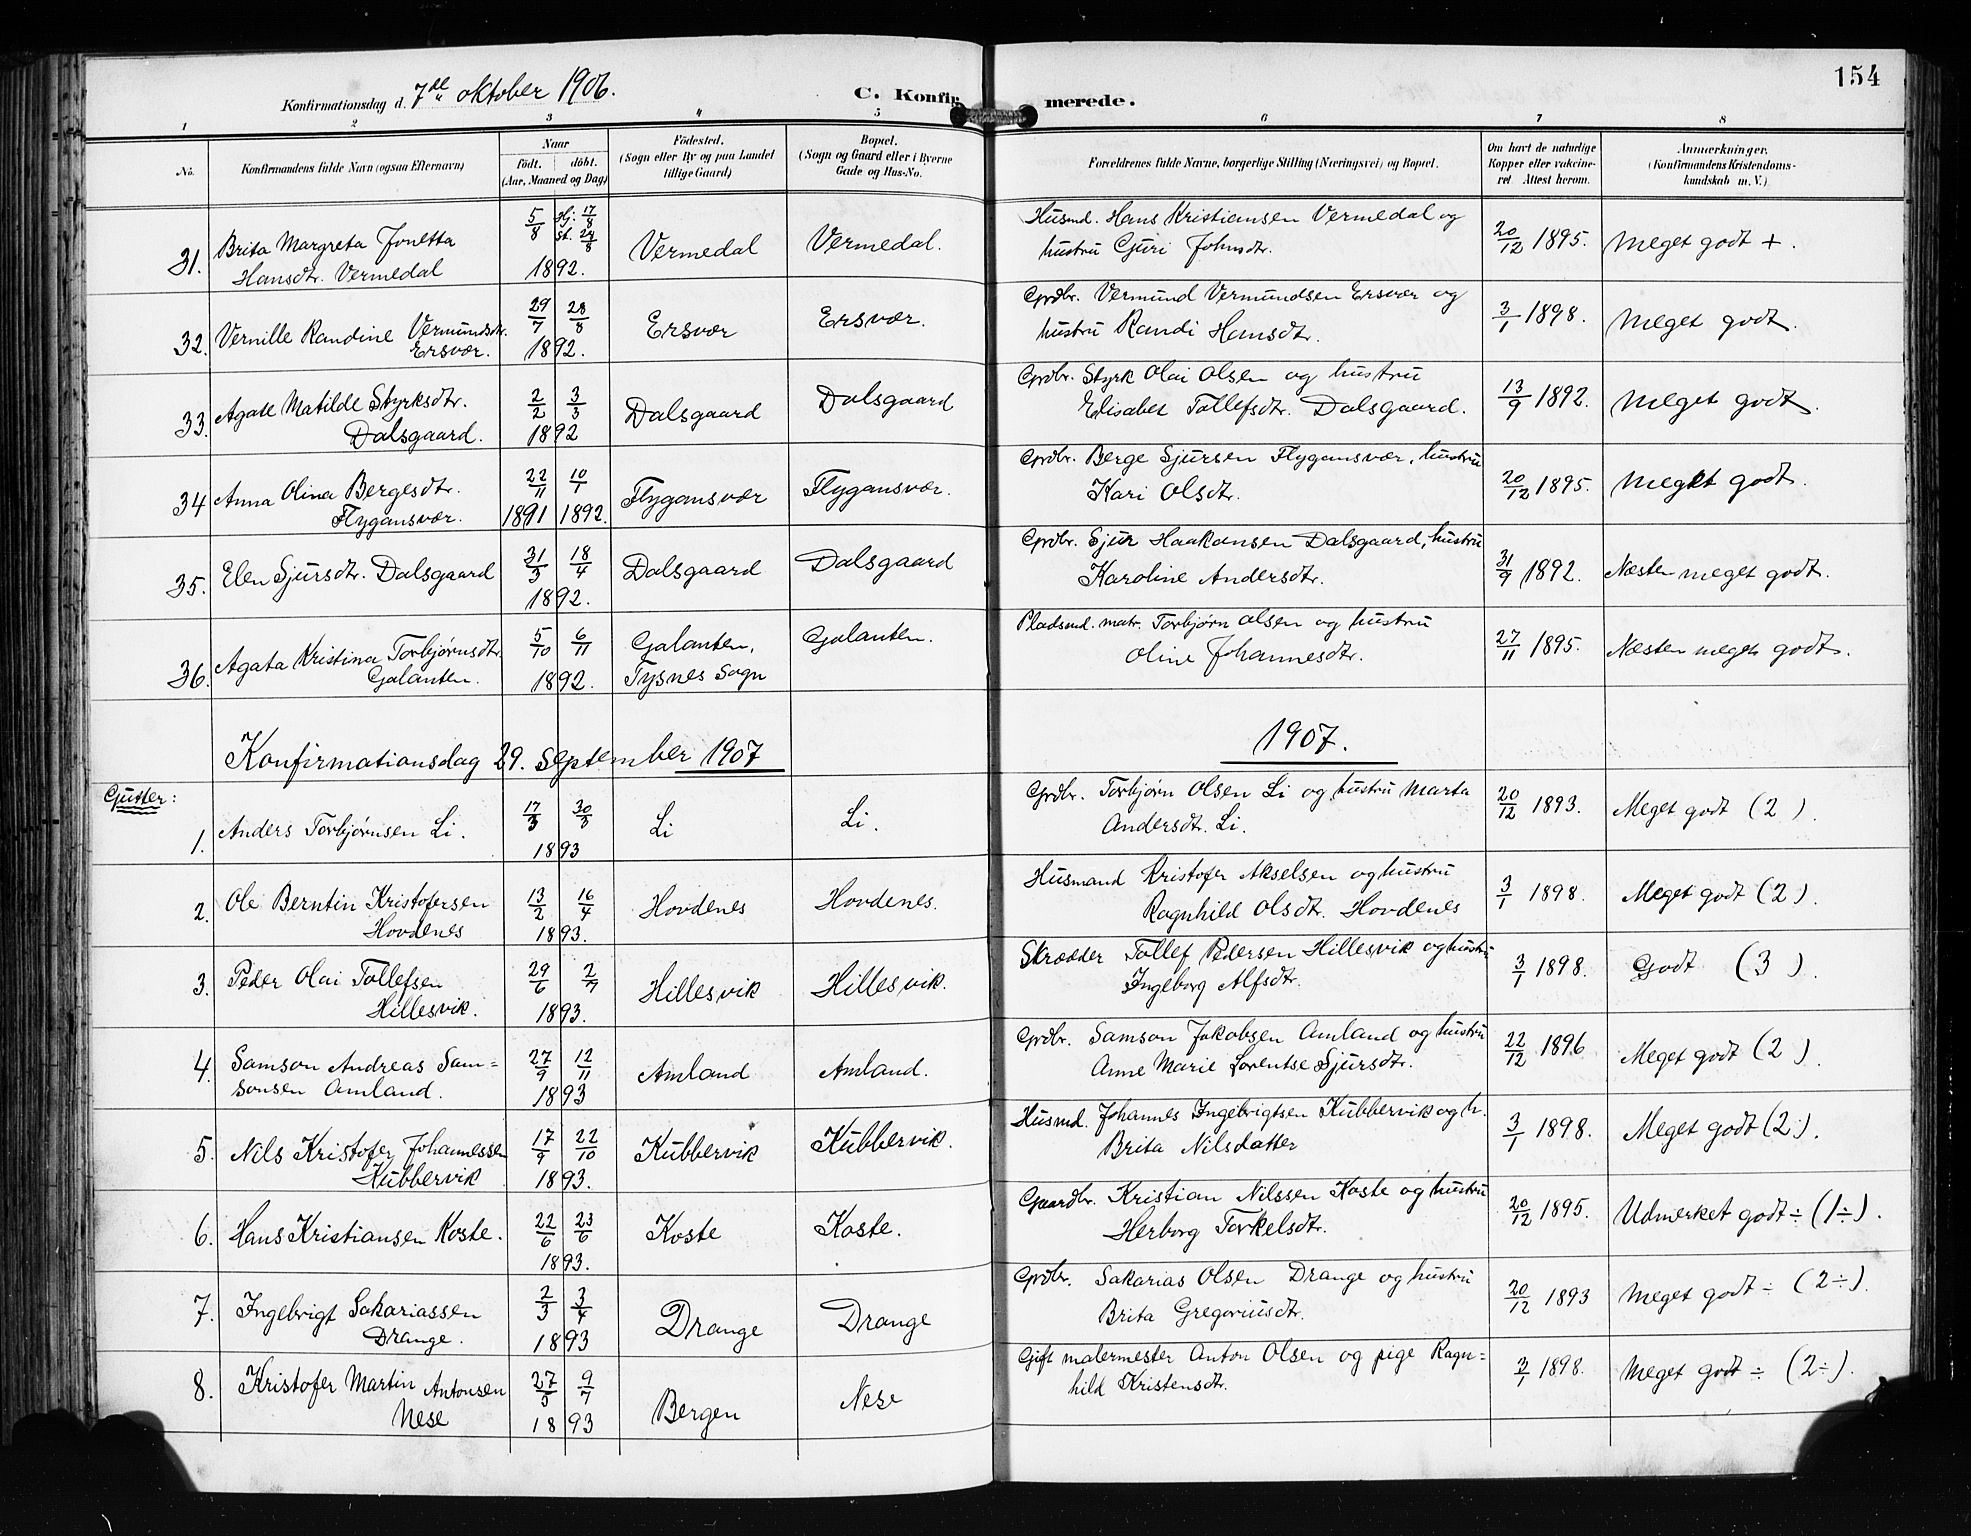 154
Konfirmationsdag d. 7de oktober 1906. C. Konfirmerede.
1 2 3 4 5 6 7 8
No. Konfirmandens fulde Navn (ogsaa Efternavn) Naar født. døbt. (Aar, Maaned og Dag) Fødested. (Sogn eller By og paa Landet tillige Gaard) Bopæl. (Sogn og Gaard eller i Byerne Gade og Hus-No. Forældrenes fulde Navne, borgerlige Stilling (Næringsvei) og Bopæl. Om havt de naturlige Kopper eller vakcineret. Attest herom. Anmærkninger. (Konfirmandens Kristendomskundskab m. V.)
31. Brita Margreta Jonetta Hansdtr. Vermedal 5/8 Hj. 17/8 St. 28/8 1892. Vermedal Vermedal. Husmd. Hans Kristiansen Vermedal og hustru Guri Johnsdtr. 20/12 1895. Meget godt +.
32. Vernille Randine Vermundsdtr. Ersvær. 29/7 28/8 1892. Ersvær Ersvær. Grdbr. Vermund Vermundsen Ersvær og hustru Randi Hansdtr. 3/1 1898. Meget godt.
33. Agate Matilde Styrksdtr. Dalsgaard. 2/2 3/3 1892 Dalsgaard Dalsgaard Grdbr. Styrk Olai Olsen og hustru Elisabet Tollefsdtr. Dalsgaard. 13/9 1892. Meget godt.
34 Anna Olina Bergesdtr. Flygansvær. 22/11 1891 10/1 1892. Flygansvær Flygansvær. Grdbr. Berge Sjursen Flygansvær, hustru Kari Olsdtr. 20/12 1895. Meget godt.
35. Elen Sjursdtr. Dalsgaard 31/3 18/4 1892. Dalsgaard Dalsgaard Grdbr. Sjur Haakonsen Dalsgaard, hustru Karoline Andersdtr. 31/9 1892. Næsten meget godt.
36. Agata Kristina Torbjørnsdtr. Galanten. 5/10 6/11 1892. Galanten, Tysnes Sogn Galanten. Pladsmd. matr. Torbjørn Olsen og hustru Oline Johannesdtr. 27/11 1895. Næsten meget godt.
Konfirmationsdag 29. September 1907 1907.
Gutter:
1. Anders Torbjørnsen Li. 17/3 30/3 1893 Li Li. Grdbr. Torbjørn Olsen Li og hustru Marta Andersdt. Li. 20/12 1893. Meget godt (2).
2. Ole Berntin Kristofersen Hovdenes 13/2 16/4 1893. Hovdenes Hovdenes. Husmand Kristofer Akselsen og hustru Ragnhild Olsdt. Hovdenes 3/1 1898. Meget godt (2).
3. Peder Olai Tollefsen Hillesvik. 29/6 2/7 1893. Hillesvik Hillesvik. Skrædder Tollef Pedersen Hillesvik og hustru Ingeborg Alfsdtr. 3/1 1898. Godt (3).
4. Samson Andreas Sam=sonsen Amland. 27/9 12/11 1893 Amland Amland. Grdbr. Samson Jakobsen Amland og hustru Anne Marie Lorentse Sjursdtr. 22/12 1896 Meget godt (2)
5. Nils Kristofer Johannessen Kubbervik 17/9 22/10 1893. Kubbervik Kubbervik. Husmd. Johannes Ingebrigtsen Kubbervik og h. Brita Nilsdatter 3/1 1898. Meget godt (2).
6. Hans Kristiansen Koste. 22/6 23/6 1893. Koste Koste. Gaardbr. Kristian Nilssen Koste og hustru Herborg Torkelsdtr. 20/12 1895. Udmerket godt ÷ (1÷).
7. Ingebrigt Sakariassen Drange. 2/3 3/4 1893 Drange Drange Grdbr. Sakarias Olsen Drange og hustru Brita Gregoriusdt. 20/12 1893 Meget godt ÷ (2÷).
8. Kristofer Martin Antonsen Nese 27/5 9/7 1893 Bergen Nese Gift malermester Anton Olsen og pige Ragn=hild Kristensdtr. 3/1 1898. Meget godt ÷ (2÷).